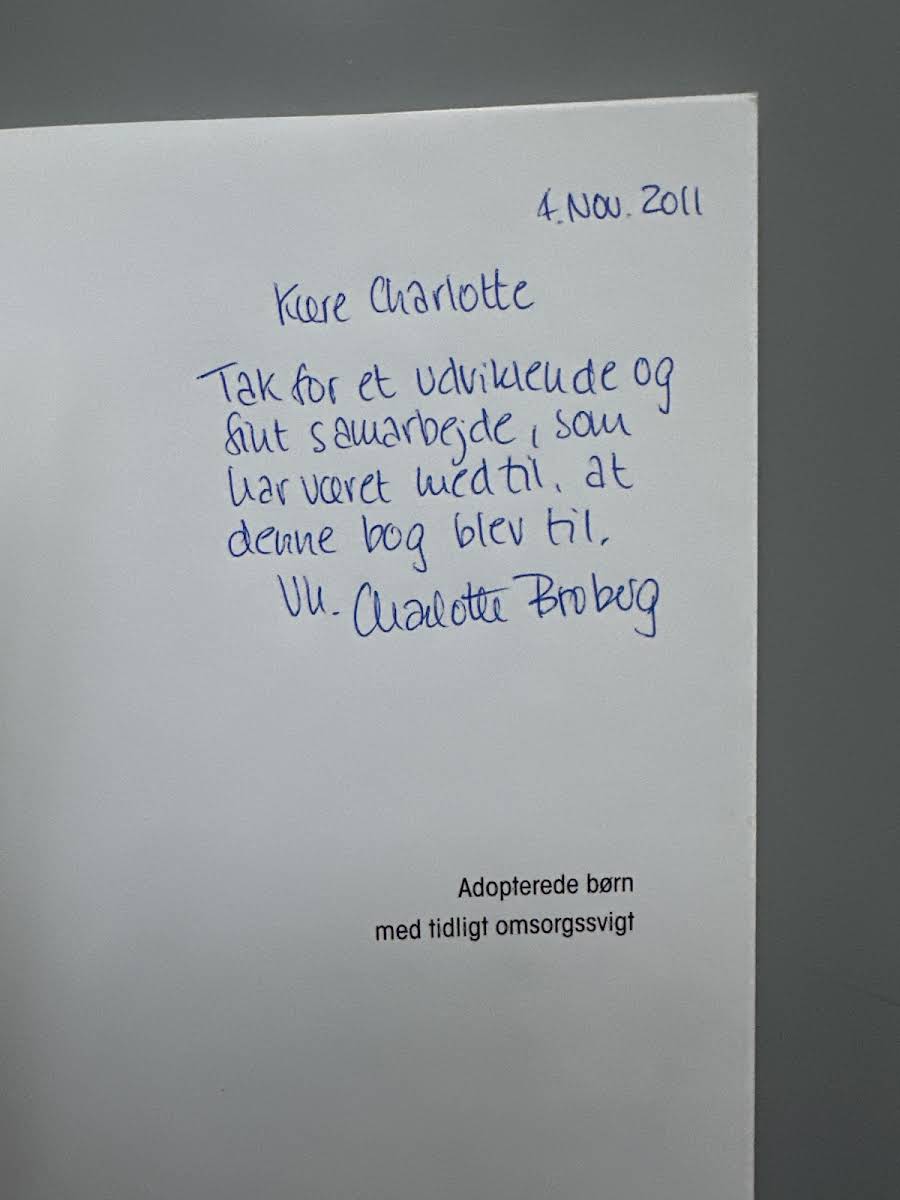 4. Nov. 2011
Kære Charlotte
Tak for et udviklende og
fint samarbejde, som
har været med til, at
denne bog blev til.
Vh. Charlotte Broberg
Adopterede børn
med tidligt omsorgssvigt